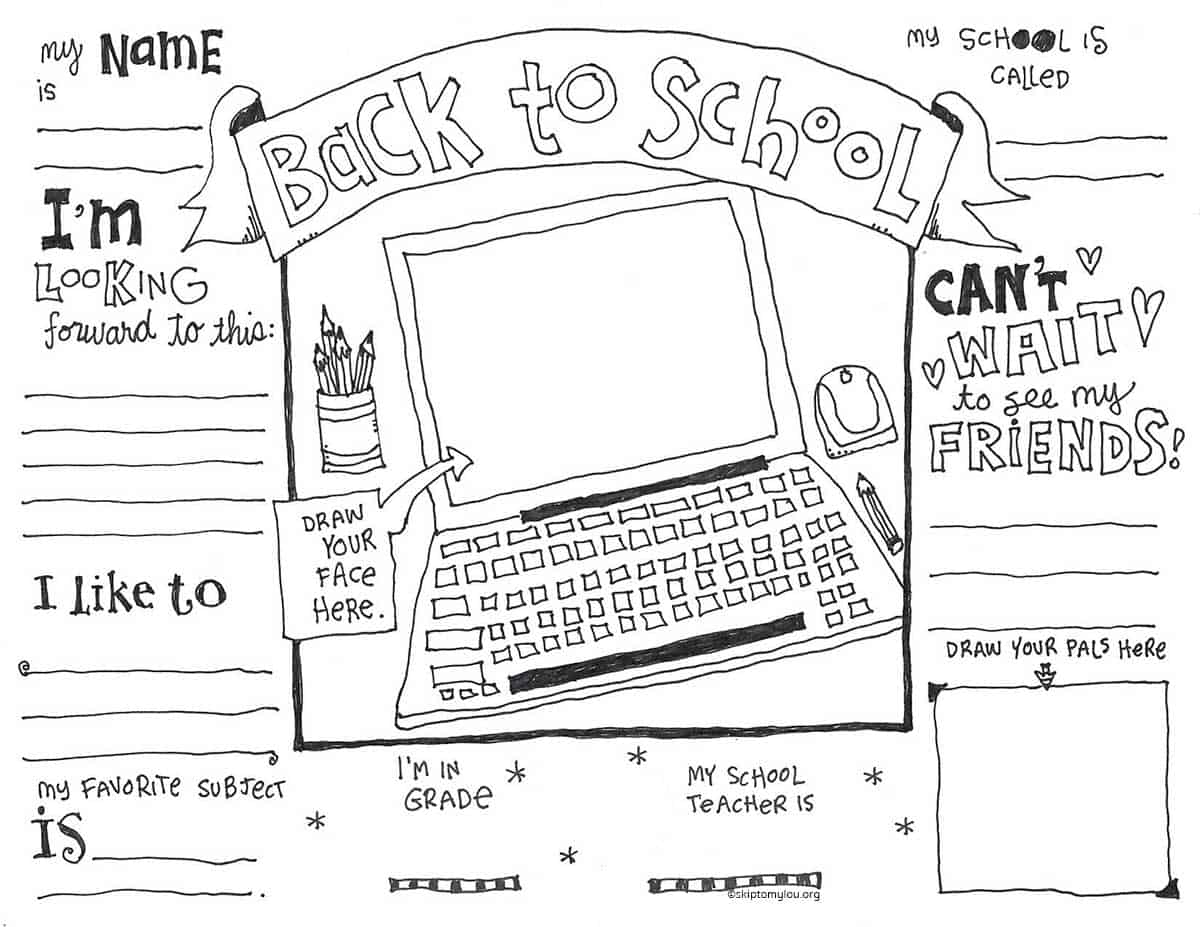 my NamE
is
Back to School
my SCHOOL iS
CALLeD
I'm
LooKiNG
forward to this:
CAN'T
WAIT
to see my
FRiENDS!
DRAW
YOUR
FACe
HeRe.
I Like to
DRAW YOUR PALS HeRe
my FAVORiTe SUBJecT
is
I'M IN
GRADe
MY SCHOOL
TeACHeR IS
©skiptomylou.org